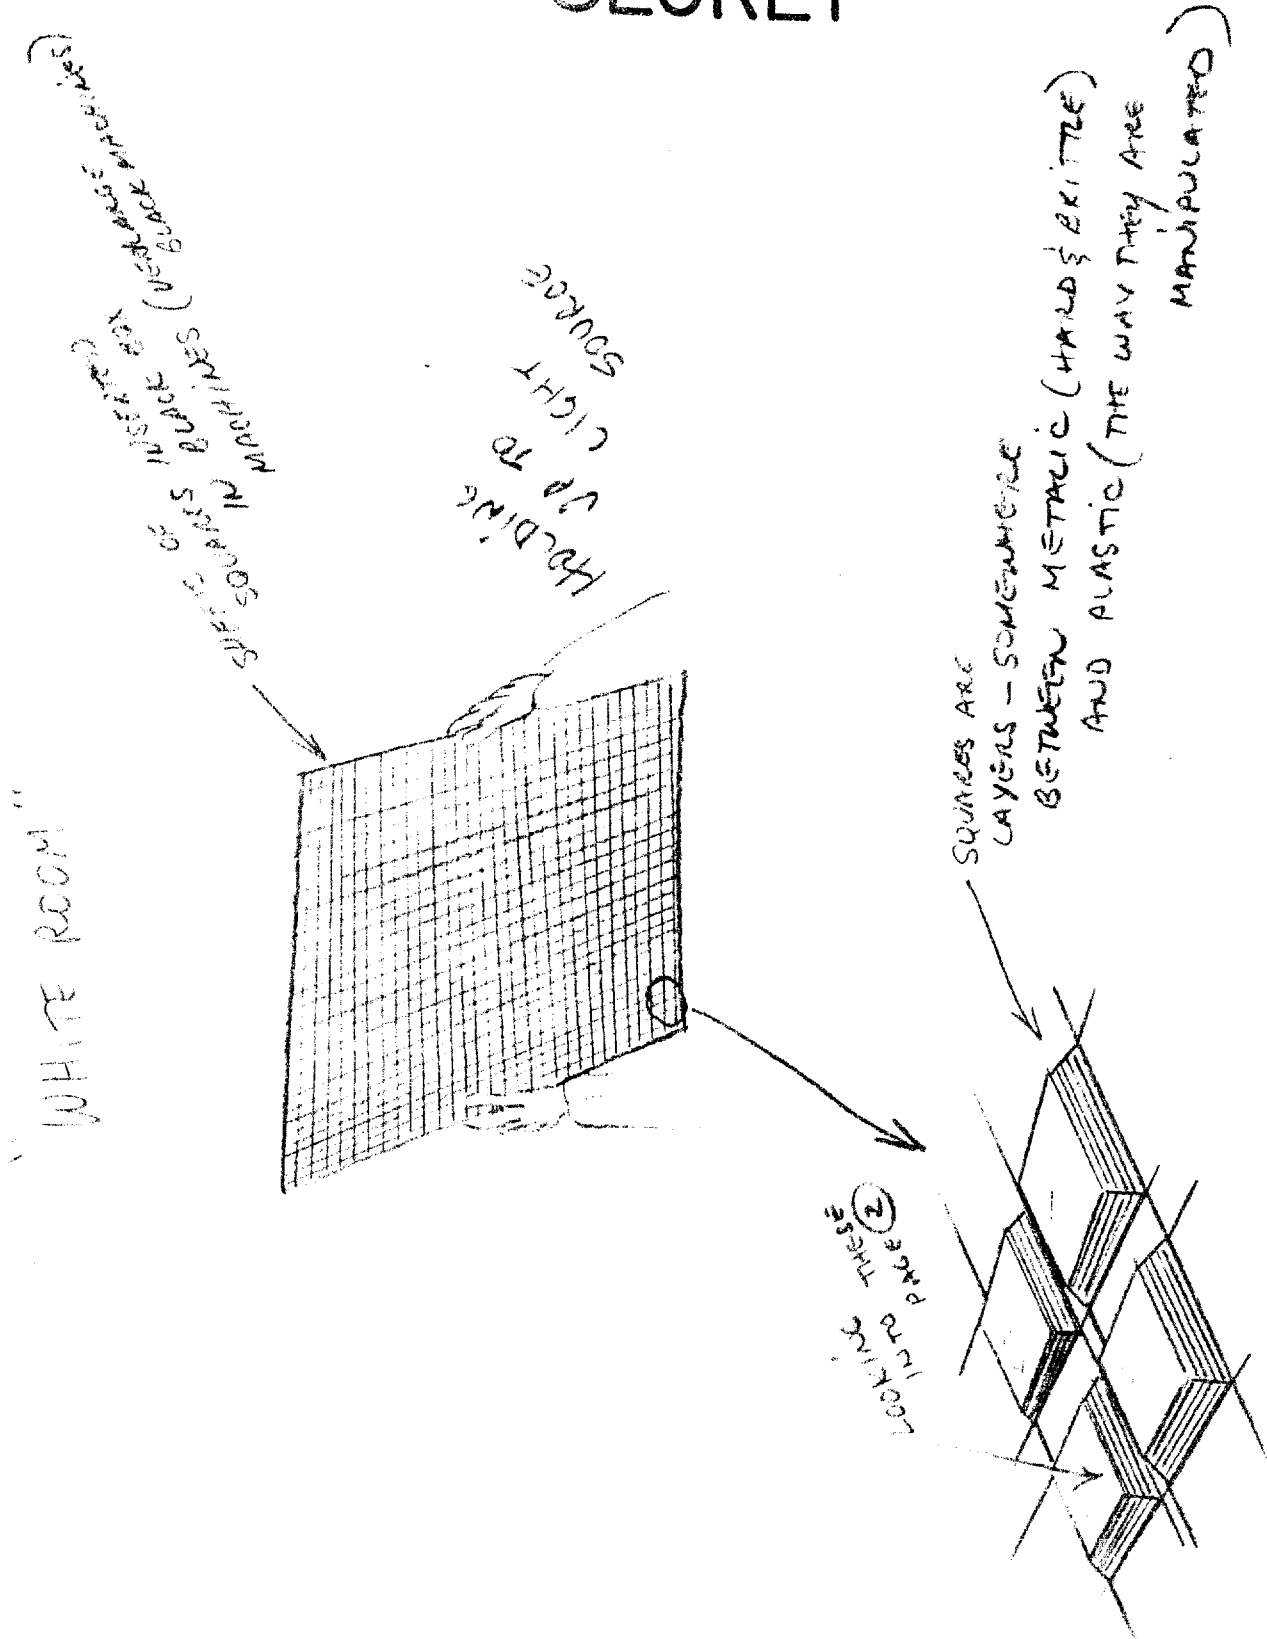 SECRET
"WHITE ROOM"
SHEETS OF
SQUARES INSERTED
IN BLACK BOX
MACHINES (
BLACK MACHINES)
HOLDING
UP TO
LIGHT
SOURCE
SQUARES ARE
LAYERS - SOMEWHERE
BETWEEN METALIC (HARD & BRITTLE)
AND PLASTIC (THE WAY THEY ARE
MANIPULATED)
LOOKING THESE
INTO PAGE 2